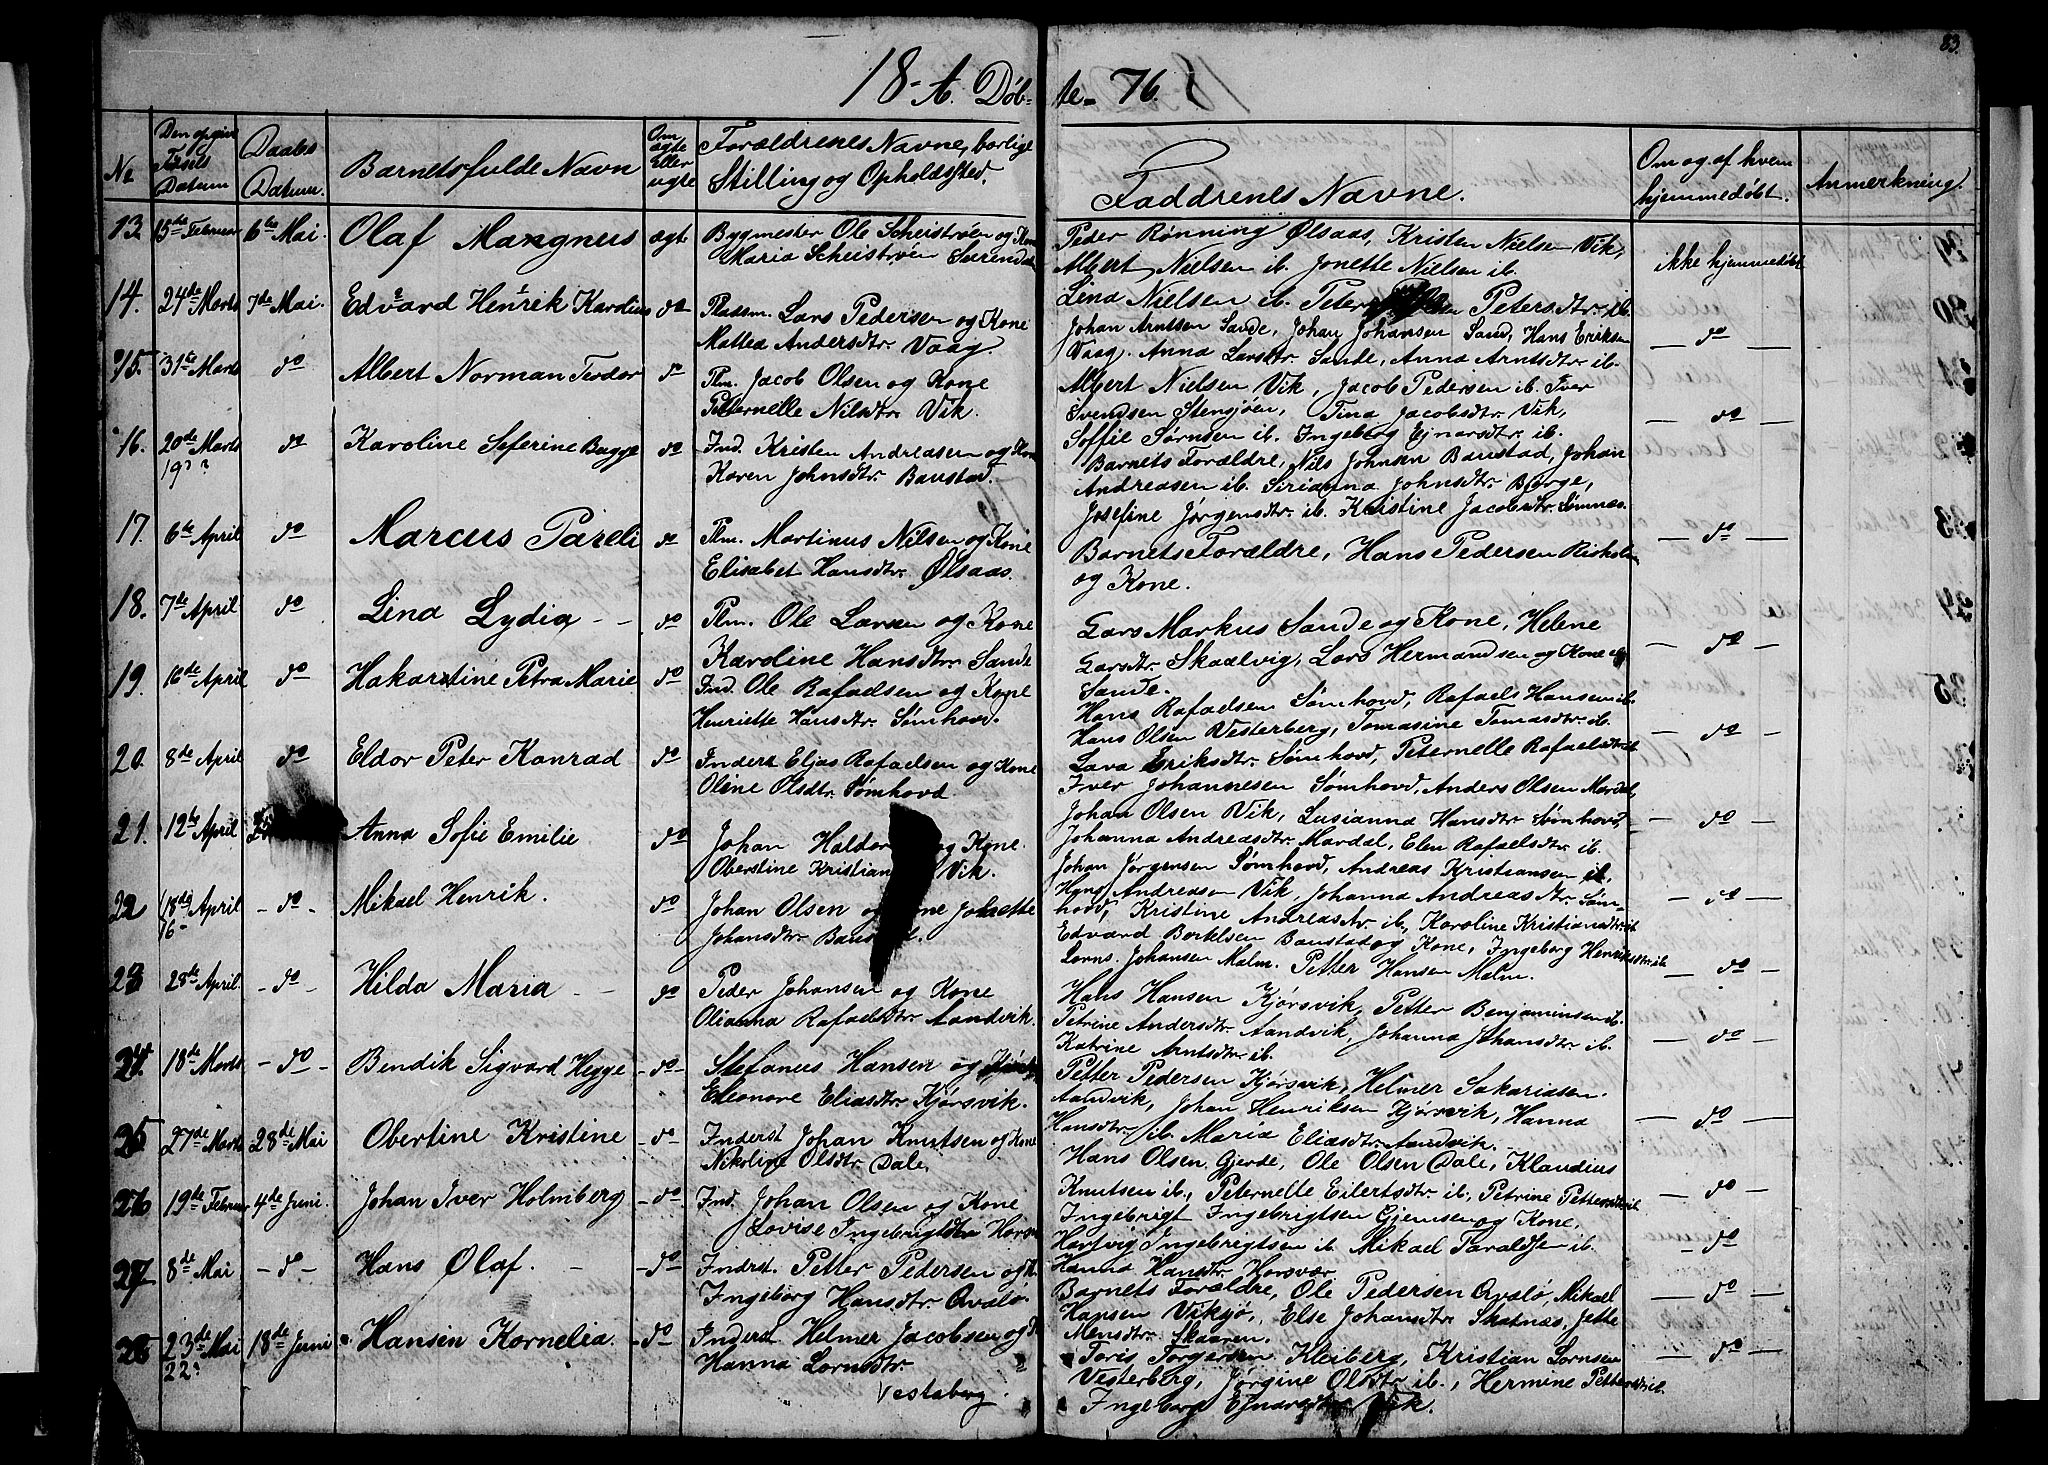 83.
18-A. Døb-
te- 76.
No
Den opgivne Fødsels Datum
Daabs Datum.
Barnets fulde Navn
Om ægte Eller uægte
Forældrenes Navne, borlige Stilling og Opholdssted.
Faddrenes Navne.
Om og af hvem hjemmedøbt.
Anmerkning.
13 15de Februar 6te Mai. Olaf Mangnus ægte Bygmester Ole Scheistrøen og Kone
Maria Scheistrøen Surendal
14. 24de Marts 7de Mai. Edvard Henrik Karolius do Pladsm. Lars Pedersen og Kone
Mattea Andersdtr. Vaag.
15. 31te Marts do Albert Norman Teodor do Plm. Jacob Olsen og Kone
Petternelle Nilsdtr. Vik.
16. 20de Marts do Karoline Seferine Bugge do Ind. Kristen Andreasen og Kone
19??
Karen Johnsdtr. Baustad.
17. 6te April do Marcus Pareli do Plm. Martinus Nilsen og Kone
Elisabet Hansdtr. Ølsaas.
18. 7de April do Lina Lydia - - do Plm. Ole Larsen og Kone
Karoline Hansdtr. Sande
19. 16de April do Hakarstine Petra Marie do Ind. Ole Rafaelsen og Kone
Henriette Hansdtr. Sømhovd.
20. 8de April do Eldor Peter Konrad do Inderst Elias Rafaelsen og Kone
Oline Olsdtr. Sømhovd
21. 12te April Anna Sofie Emilie do Johan Haldor og Kone.
Oberstine Kristian Vik.
22 18de April - do - Mikael Henrik. do Johan Olsen og Kone
16
Johansdtr.
23 28de April. - do - Hilda Maria - - do Peder Johansen og Kone
Olianna Rafaelsdtr. Aandvik.
24. 18de Marts - do - Bendik Sigvard Hegge - do - Stefanus Hansen og
Eleonore Eliasdtr. Kjørsvik.
25 27de Marts 28de Mai Obertine Kristine - do - Inderst Johan Knutsen og Kone
Nikoline Olsdtr. Dale.
26 19de Februar 4de Juni. Johan Iver Holmberg - do - Ind. Johan Olsen og Kone
Lovise Ingebrigtsdtr
27 8de Mai - do - Hans Olaf. - - do - Inderst. Petter Pedersen og K
Ingeborg Hansdtr. Qvalø.
28 23de Mai 18de Juni Hansin Kornelia. - do - Inderst Helmer Jacobsen og K
22?
Hanna Lornsdtr
Vestaberg.
Peder Rønning Ølsaas, Kristen Nielsen Vik,
Albert Nielsen ib. Jonette Nielsen ib. ikke hjemmedøbt
Lina Nielsen ib. Peter Petersdtr. ib.
Johan Arntsen Sande, Johan Johansen Sand, Hans Eriksen
Vaag. Anna Larsdtr. Sande, Anna Arntsdtr ib. - do -
Albert Nielsen Vik, Jacob Pedersen ib. Iver
Svendsen Stensjøen, Tina Jacobsdtr. Vik,
Soffie Sørnsen ib. Ingeberg Ejnarsdtr. ib. - do -
Barnets Forældre, Nils Johnsen Baustad, Johan
Andreasen ib. Sirianna Johnsdtr. Børge,
Josefine Jørgensdtr. ib. Kristine Jacobsdtr. Sømnæs.
Barnets Forældre, Hans Pedersen - do -
og Kone.
Lars Markus Sande og Kone, Helene
Larsdtr. Skaalvig, Lars Hermandsen og Kone - do -
Sande.
Hans Rafaelsen Sømhovd, Rafaels Hansen ib.
Hans Olsen Vesterberg, Tomasine Tomasdtr. ib. - do -
Lava Eriksdtr. Sømhovd, Peternelle Rafaelsdtr. ib
Iver Johannesen Sømhovd, Anders Olsen Mardal,
Johan Olsen Vik, Lusianna Hansdtr. Sømhovd, - do -
Johanna Andreasdtr. Mardal, Elen Rafaelsdtr. ib.
Johan Jørgensen Sømhovd, Andreas Kristiansen ib.
Hans Andreasen Vik, Johanna Andreasdtr. Søm- - do -
hovd, Kristine Andreasdtr. ib., Karoline Kristiansdtr. ib
Edvard Bortelsen Baustad og Kone, Ingeborg Henriksdtr. ib
Lorns. Johansen Malm. Petter Hansen Malm. - do -
Hans Hansen Kjørsvik, Petter Benjaminsen ib.
Petrine Andersdtr. Aandvik, Johanna Johansdtr. ib. - do -
Katrine Arntsdtr. ib.
Petter Pedersen Kjørsvik, Helmer Sakariasen
Aandvik, Johan Henriksen Kjørsvik, Hanna - do -
Hansdtr. ib. Maria Eliasdtr. Aandvik.
Hans Olsen, Gjerde, Ole Olsen Dale, Klaudius
Knutsen ib., Peternelle Eilertsdtr. ib., Petrine Pettersdtr. ib - do -
Ingebrigt Ingebrigtsen Gjemsen og Kone,
Hartvig Ingebrigtsen ib. Mikael Taraldsen ib. - do -
Hanna Hansdtr. Horsvær
Barnets Forældre, Ole Pedersen Qvalø, Mikael - do -
Hansen Viksjø, Else Johansdtr. Skatnæs, Jette
Mensdtr. Skaaren.
Toris Torgersen Kleiberg, Kristian Lornsen - do -
Vesterberg, Jørgine Olsdtr ib., Hermine Pettersdtr. ib
Ingeborg Ejnarsdtr. Vik.